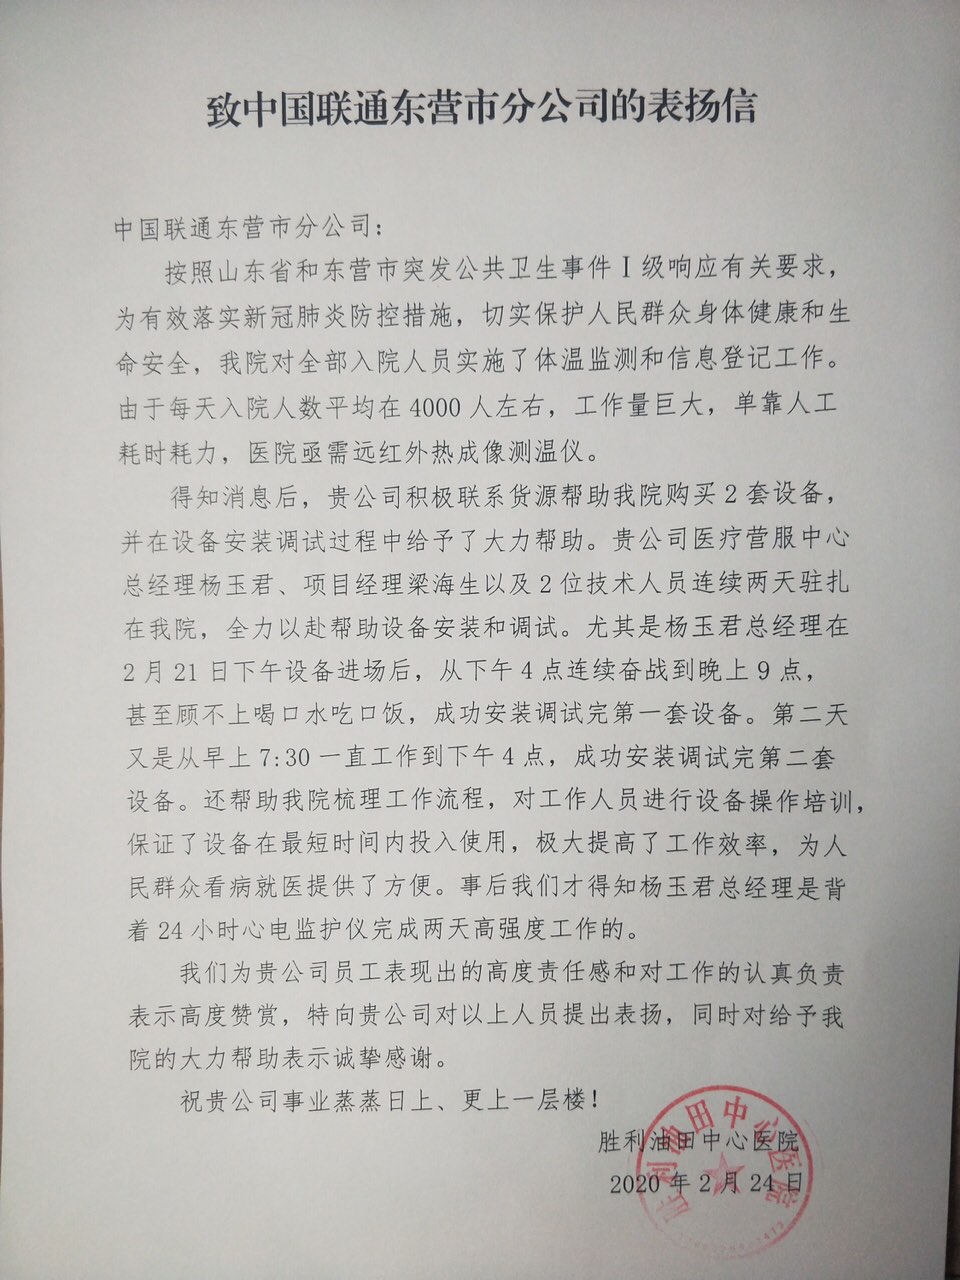 致中国联通东营市分公司的表扬信
中国联通东营市分公司：
按照山东省和东营市突发公共卫生事件Ⅰ级响应有关要求，
为有效落实新冠肺炎防控措施，切实保护人民群众身体健康和生
命安全，我院对全部入院人员实施了体温监测和信息登记工作。
由于每天入院人数平均在 4000 人左右，工作量巨大，单靠人工
耗时耗力，医院亟需远红外热成像测温仪。
得知消息后，贵公司积极联系货源帮助我院购买 2 套设备，
并在设备安装调试过程中给予了大力帮助。贵公司医疗营服中心
总经理杨玉君、项目经理梁海生以及 2 位技术人员连续两天驻扎
在我院，全力以赴帮助设备安装和调试。尤其是杨玉君总经理在
2 月 21 日下午设备进场后，从下午 4 点连续奋战到晚上 9 点，
甚至顾不上喝口水吃口饭，成功安装调试完第一套设备。第二天
又是从早上 7:30 一直工作到下午 4 点，成功安装调试完第二套
设备。还帮助我院梳理工作流程，对工作人员进行设备操作培训，
保证了设备在最短时间内投入使用，极大提高了工作效率，为人
民群众看病就医提供了方便。事后我们才得知杨玉君总经理是背
着 24 小时心电监护仪完成两天高强度工作的。
我们为贵公司员工表现出的高度责任感和对工作的认真负责
表示高度赞赏，特向贵公司对以上人员提出表扬，同时对给予我
院的大力帮助表示诚挚感谢。
祝贵公司事业蒸蒸日上、更上一层楼！
胜利油田中心医院
2020 年 2 月 24 日
胜利油田中心医院